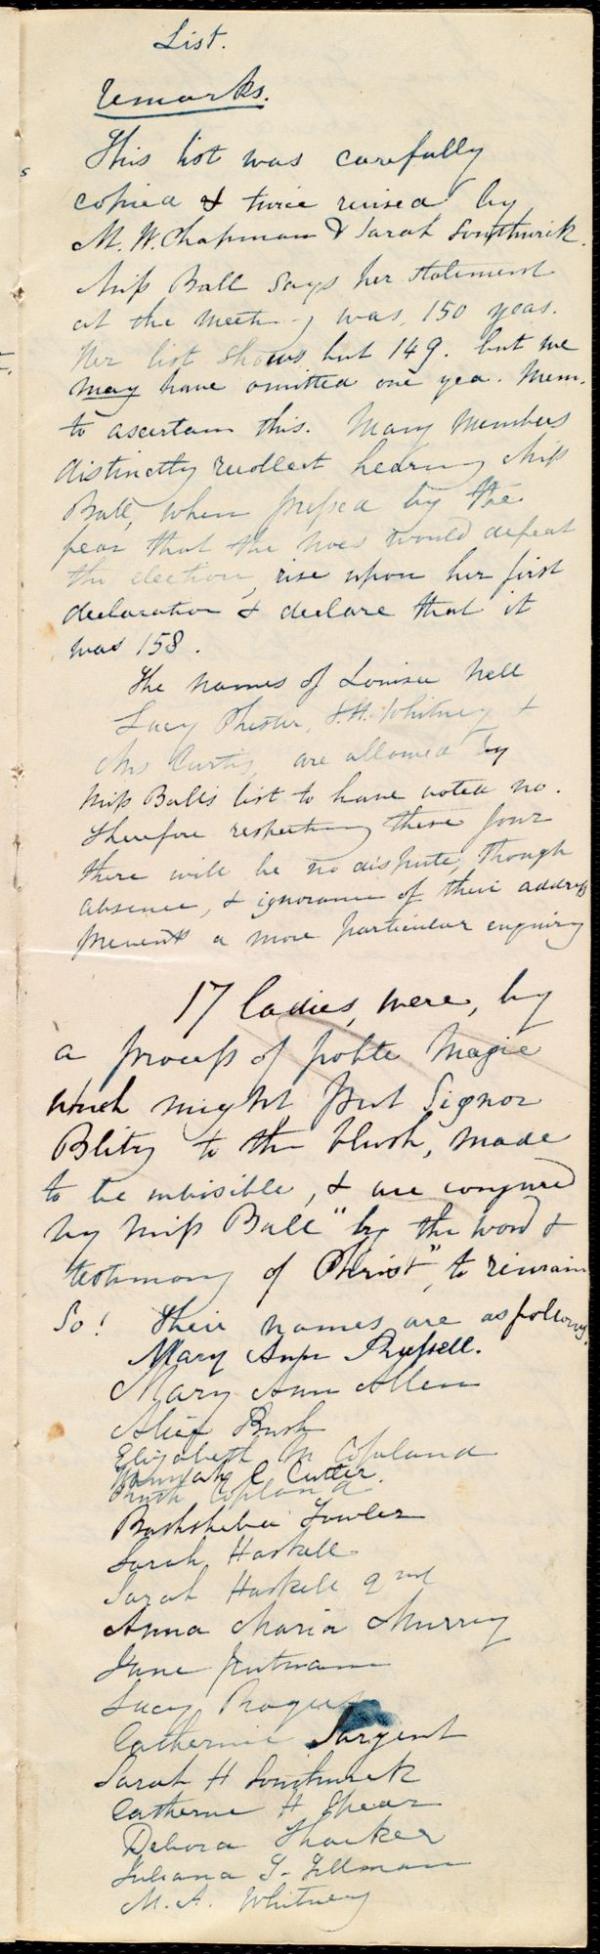 List.
Remarks.
This list was carefully
copied & twice revised by
M. W. Chapman & Sarah Southwick.
Miss Ball says her statement
at the meeting was, 150 yeas.
Her list shows but 149. but we
may have omitted one yea. Mem.
to ascertain this. Many members
distinctly recollect hearing Miss
Ball, when pressed by the
fear that the noes would defeat
the election, rise upon her first
declaration & declare that it
was 158.
The names of Louisa Nell
Lucy Chester, J. H. Whitney &
Mrs Curtis, are allowed by
Miss Balls list to have voted no.
Therefore respecting these four
there will be no dispute, though
absence, & ignorance of their address
prevents a more particular enquiry
17 ladies, were, by
a process of polite magic
which might put Signor
Blitz to the blush, made
to be invisible, & are conjured
by Miss Ball "by the word &
testimony of Christ", to remain
so! Their names are as follows.
Mary Ann Russell.
Mary Ann Allen
Alice Bush
Elizabeth M Copeland
Hannah C Cutter.
Ruth Copland
Bathsheba Fowler
Sarah Haskell
Sarah Haskell 2nd
Anna Maria Murray
Jane Putnam
Lucy
Catherine Sargent
Sarah H Southwick
Catherine H Spear
Debora Thacker
Juliana T. Tillman
M. A. Whitney